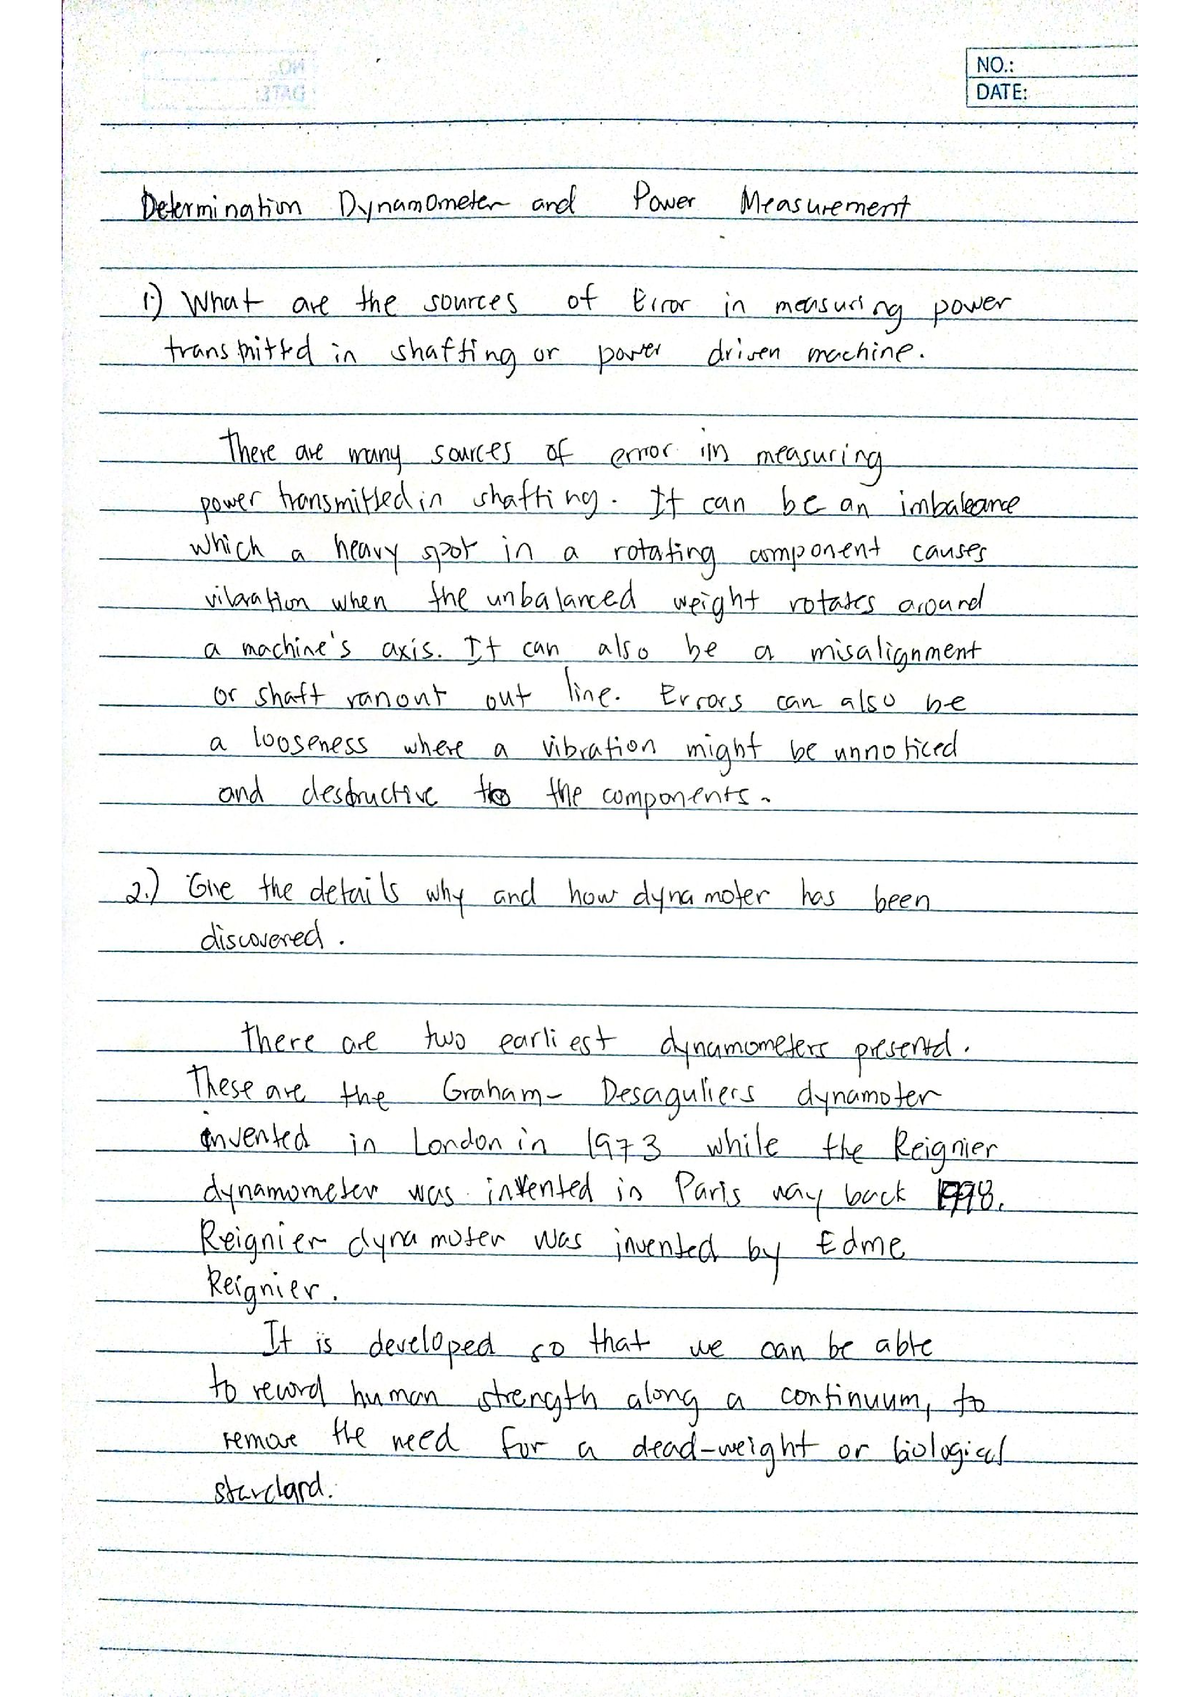 NO.:
DATE:
Determination Dynamometer and Power Measurement
1.) What are the sources of Error in measuring power
transmitted in shafting or power driven machine.
There are many sources of error in measuring
power transmitted in shafting. It can be an imbalance
which a heavy spot in a rotating component causes
vibration when the unbalanced weight rotates around
a machine's axis. It can also be a misalignment
or shaft ranout out line. Errors can also be
a looseness where a vibration might be unnoticed
and destructive to the components.
2.) Give the details why and how dynamoter has been
discovered.
There are two earliest dynamometers presentd.
These are the Graham- Desaguliers dynamoter
invented in London in 1973 while the Reignier
dynamometer was invented in Paris way back 1798.
Reignier dynamoter was invented by Edme
Reignier.
It is developed so that we can be able
to record human strength along a continuum, to
remove the need for a dead-weight or biological
standard.